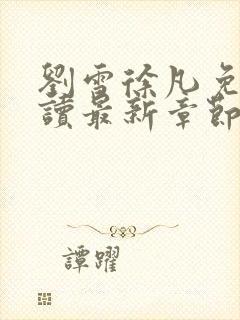 劉雪徐凡免
讀最新章節
譚躍